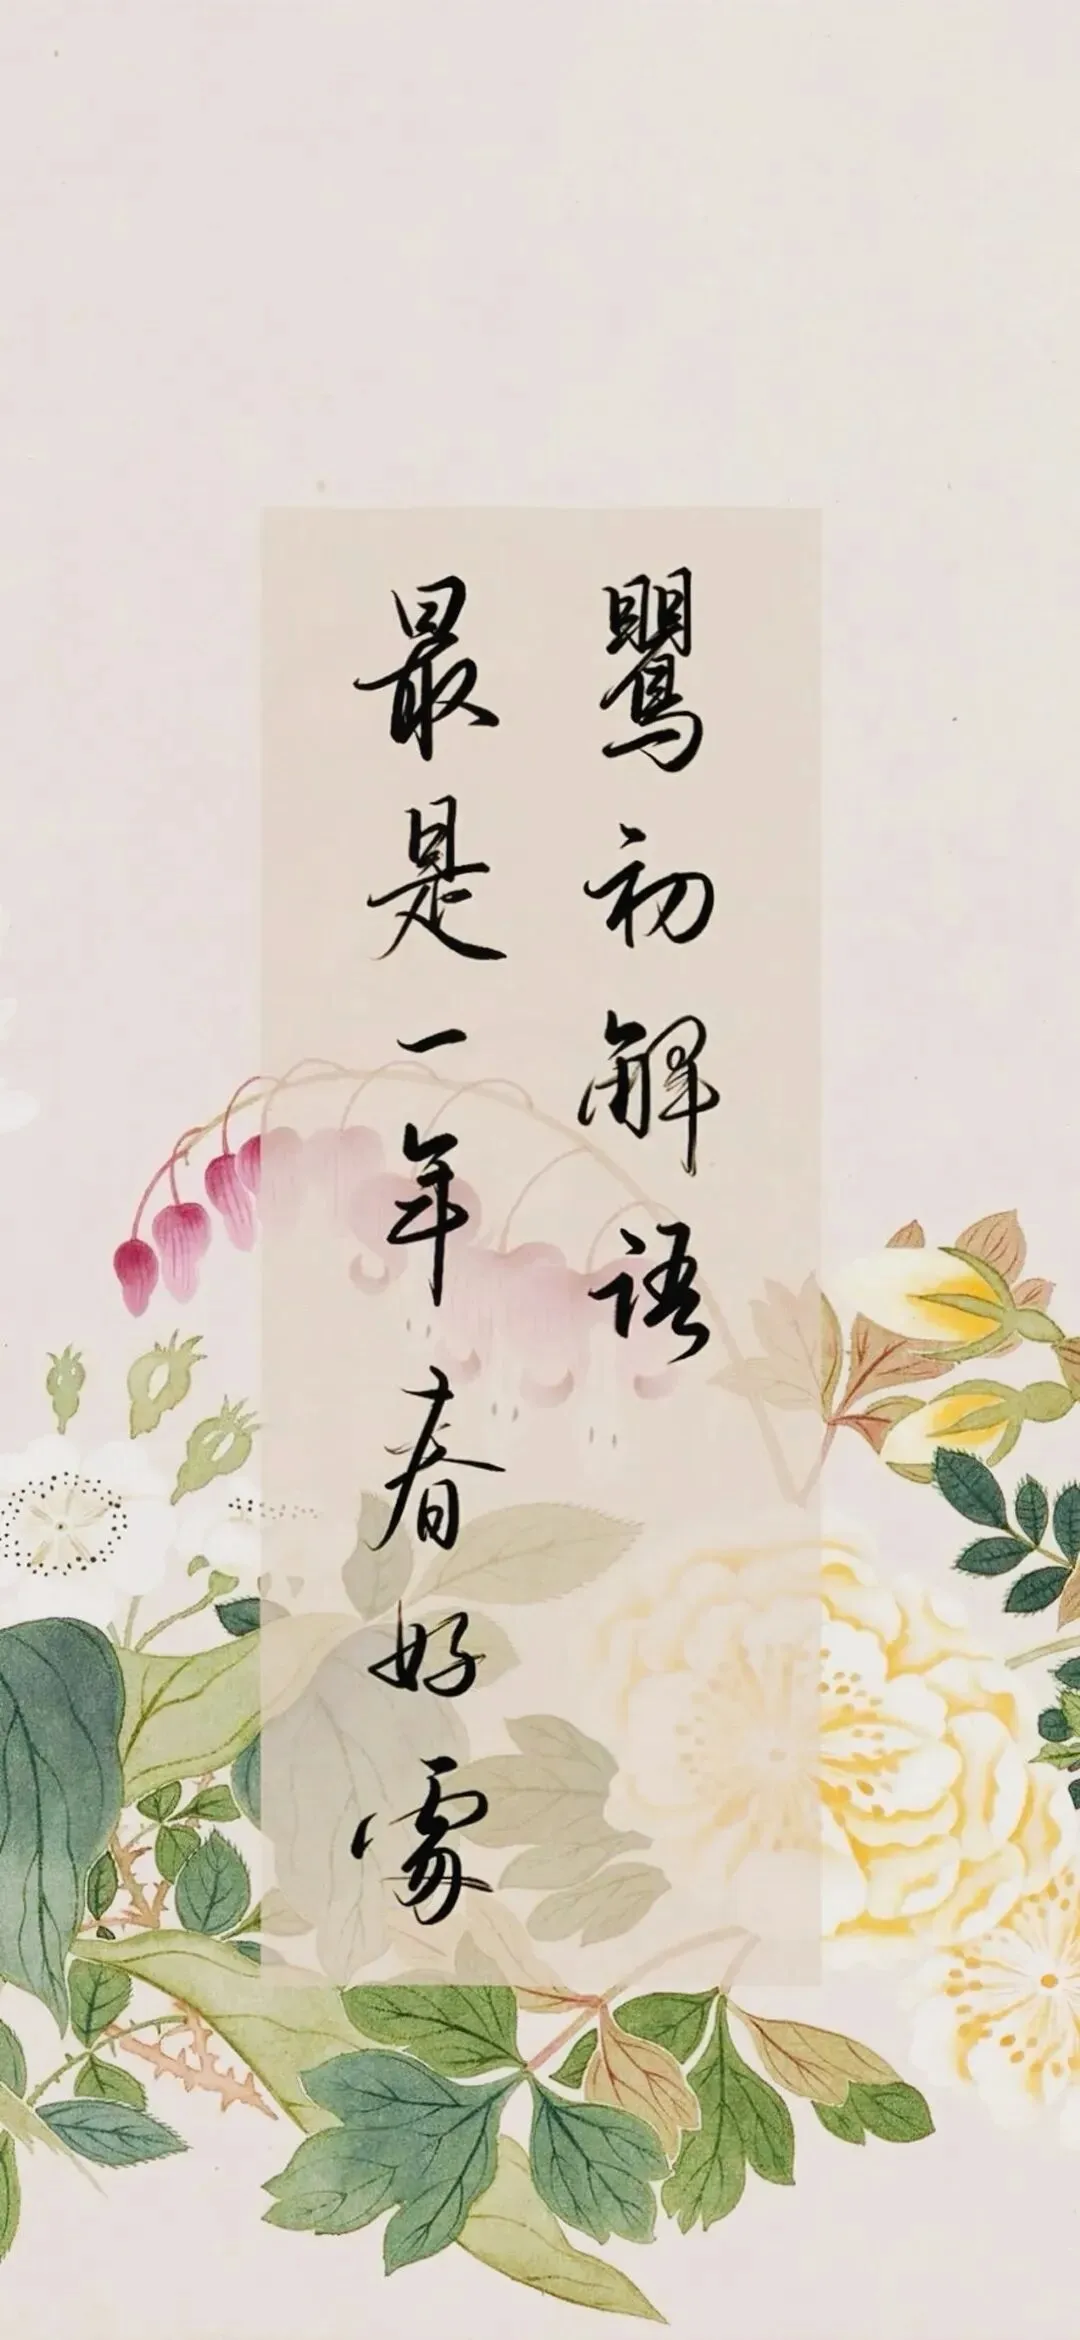 鶯初解語
最是一年春好處